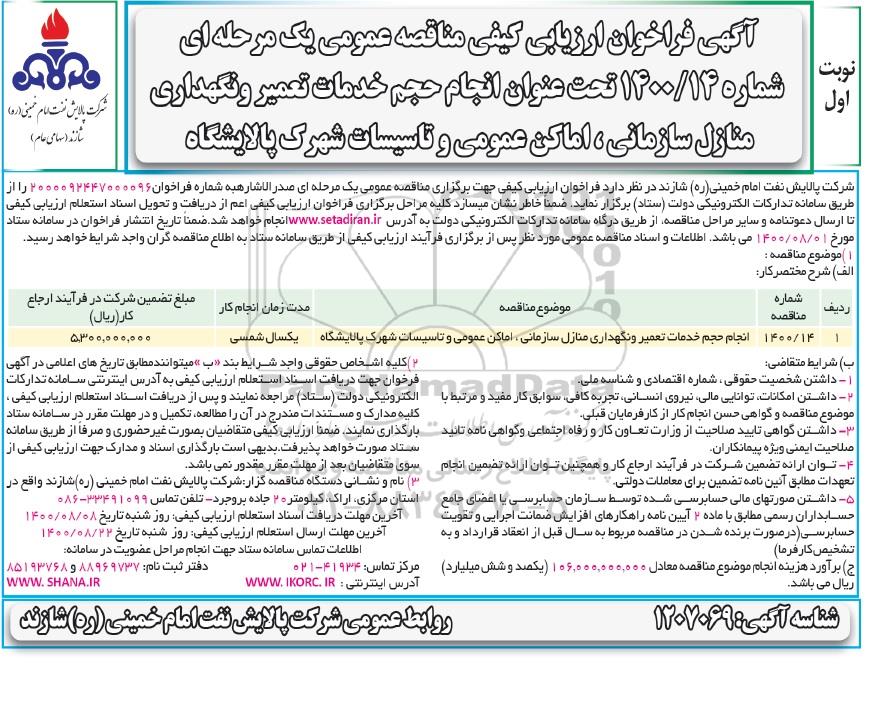 آگهی فراخوان ارزیابی کیفی مناقصه عمومی یک مرحله ای
شماره ۱۴۰۰/۱۴ تحت عنوان انجام حجم خدمات تعمیر و نگهداری
منازل سازمانی ، اماکن عمومی و تاسیسات شهرک پالایشگاه
نوبت
اول
شرکت پالایش نفت امام خمینی (ره)
شازند (سهامی عام)
شرکت پالایش نفت امام خمینی(ره) شازند در نظر دارد فراخوان ارزیابی کیفی جهت برگزاری مناقصه عمومی یک مرحله ای صدرالاشارهبه شماره فراخوان۲۰۰۰۰۹۲۴۴۷۰۰۰۰۹۶ را از
طریق سامانه تدارکات الکترونیکی دولت (ستاد) برگزار نماید. ضمنا خاطر نشان میسازد کلیه مراحل برگزاری فراخوان ارزیابی کیفی اعم از دریافت و تحویل اسناد استعلام ارزیابی کیفی
تا ارسال دعوتنامه و سایر مراحل مناقصه، از طریق درگاه سامانه تدارکات الکترونیکی دولت به آدرس www.setadiran.ir انجام خواهد شد.ضمناً تاریخ انتشار فراخوان در سامانه ستاد
مورخ ۱۴۰۰/۰۸/۰۱ می باشد. اطلاعات و اسناد مناقصه عمومی مورد نظر پس از برگزاری فرآیند ارزیابی کیفی از طریق سامانه ستاد به اطلاع مناقصه گران واجد شرایط خواهد رسید.
۱)موضوع مناقصه :
الف) شرح مختصر کار:
ردیف شماره مناقصه موضوع مناقصه مدت زمان انجام کار مبلغ تضمین شرکت در فرآیند ارجاع کار(ریال)
۱ ۱۴۰۰/۱۴ انجام حجم خدمات تعمیر ونگهداری منازل سازمانی ، اماکن عمومی و تاسیسات شهرک پالایشگاه یکسال شمسی ۵,۳۰۰,۰۰۰,۰۰۰
ب) شرایط متقاضی:
۱- داشتن شخصیت حقوقی ، شماره اقتصادی و شناسه ملی.
۲- داشتن امکانات، توانایی مالی، نیروی انسانی، تجربه کافی، سوابق کار مفید و مرتبط با
موضوع مناقصه و گواهی حسن انجام کار از کارفرمایان قبلی.
۳- داشتن گواهی تایید صلاحیت از وزارت تعاون کار و رفاه اجتماعی وگواهی نامه تائید
صلاحیت ایمنی ویژه پیمانکاران.
۴- توان ارائه تضمین شرکت در فرآیند ارجاع کار و همچنین توان ارائه تضمین انجام
تعهدات مطابق آئین نامه تضمین برای معاملات دولتی.
۵- داشتن صورتهای مالی حسابرسی شده توسط سازمان حسابرسی یا اعضای جامع
حسابداران رسمی مطابق با ماده ۲ آیین نامه راهکارهای افزایش ضمانت اجرایی و تقویت
حسابرسی(درصورت برنده شدن در مناقصه مربوط به سال قبل از انعقاد قرارداد و به
تشخیص کارفرما)
ج) برآورد هزینه انجام موضوع مناقصه معادل ۱۰۶,۰۰۰,۰۰۰,۰۰۰ (یکصد و شش میلیارد)
ریال می باشد.
۲)کلیه اشخاص حقوقی واجد شرایط بند «ب »میتوانندمطابق تاریخ های اعلامی در آگهی
فراخوان جهت دریافت اسناد استعلام ارزیابی کیفی به آدرس اینترنتی سامانه تدارکات
الکترونیکی دولت (ستاد) مراجعه نمایند و پس از دریافت اسناد استعلام ارزیابی کیفی ،
کلیه مدارک و مستندات مندرج در آن را مطالعه، تکمیل و در مهلت مقرر در سامانه ستاد
بارگذاری نمایند. ضمنا ارزیابی کیفی متقاضیان بصورت غیرحضوری و صرفاً از طریق سامانه
ستاد صورت خواهد پذیرفت.بدیهی است بارگذاری اسناد و مدارک جهت ارزیابی کیفی از
سوی متقاضیان بعد از مهلت مقرر مقدور نمی باشد.
۳) نام و نشانی دستگاه مناقصه گزار:شرکت پالایش نفت امام خمینی (ره)شازند واقع در
استان مرکزی، اراک، کیلومتر ۲۰ جاده بروجرد- تلفن تماس ۳۳۴۹۱۰۹۹-۰۸۶
آخرین مهلت دریافت اسناد استعلام ارزیابی کیفی: روز شنبه به تاریخ ۱۴۰۰/۰۸/۰۸
آخرین مهلت ارسال استعلام ارزیابی کیفی: روز شنبه به تاریخ ۱۴۰۰/۰۸/۲۲
اطلاعات تماس سامانه ستاد جهت انجام مراحل عضویت در سامانه:
مرکز تماس: ۴۱۹۳۴-۰۲۱ دفتر ثبت نام: ۸۸۹۶۹۷۳۷ و ۸۵۱۹۳۷۶۸
آدرس اینترنتی : WWW. IKORC. IR WWW. SHANA.IR
شناسه آگهی: ۱۲۰۷۰۶۹ روابط عمومی شرکت پالایش نفت امام خمینی (ره) شازند